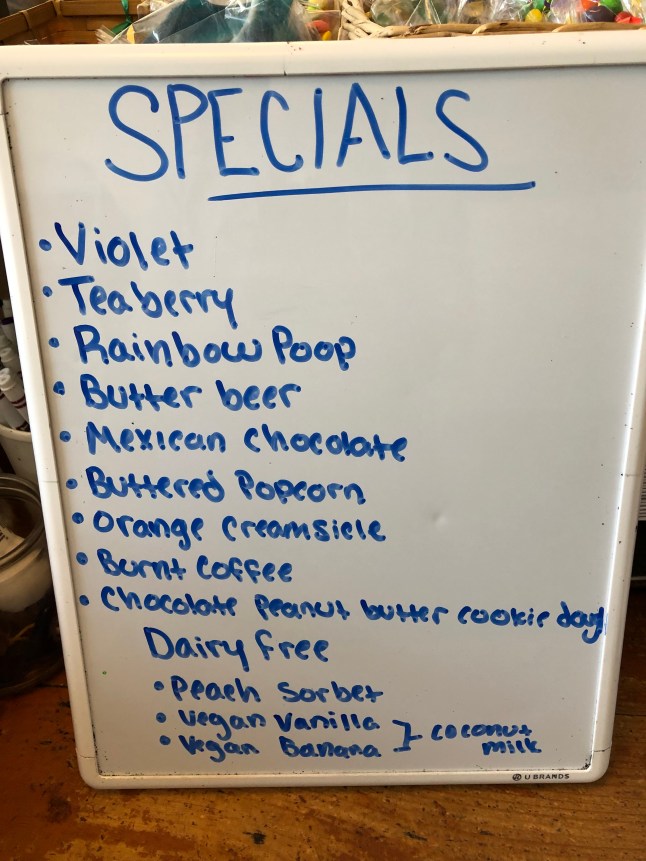 SPECIALS
• Violet
• Teaberry
• Rainbow Poop
• Butter beer
• Mexican Chocolate
• Buttered Popcorn
• Orange Creamsicle
• Burnt Coffee
• Chocolate Peanut butter cookie doug
Dairy free
• Peach Sorbet
• Vegan Vanilla
• Vegan Banana } coconut milk
U BRANDS